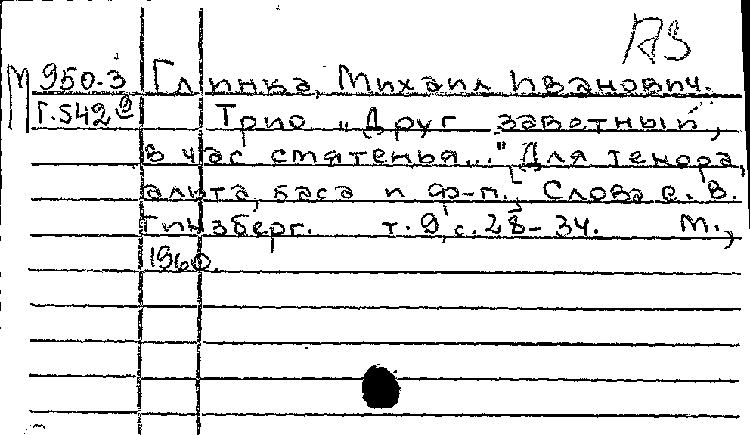 АЗ
М 950-3 Глинка, Михаил Иванович.
Г.542 Трио „Друг заветный,
в час смятенья..." Для тенора,
альта, баса и ф-п. Слова С. В.
Гинзберг. т. 9, с. 28-34. М.,
1960.